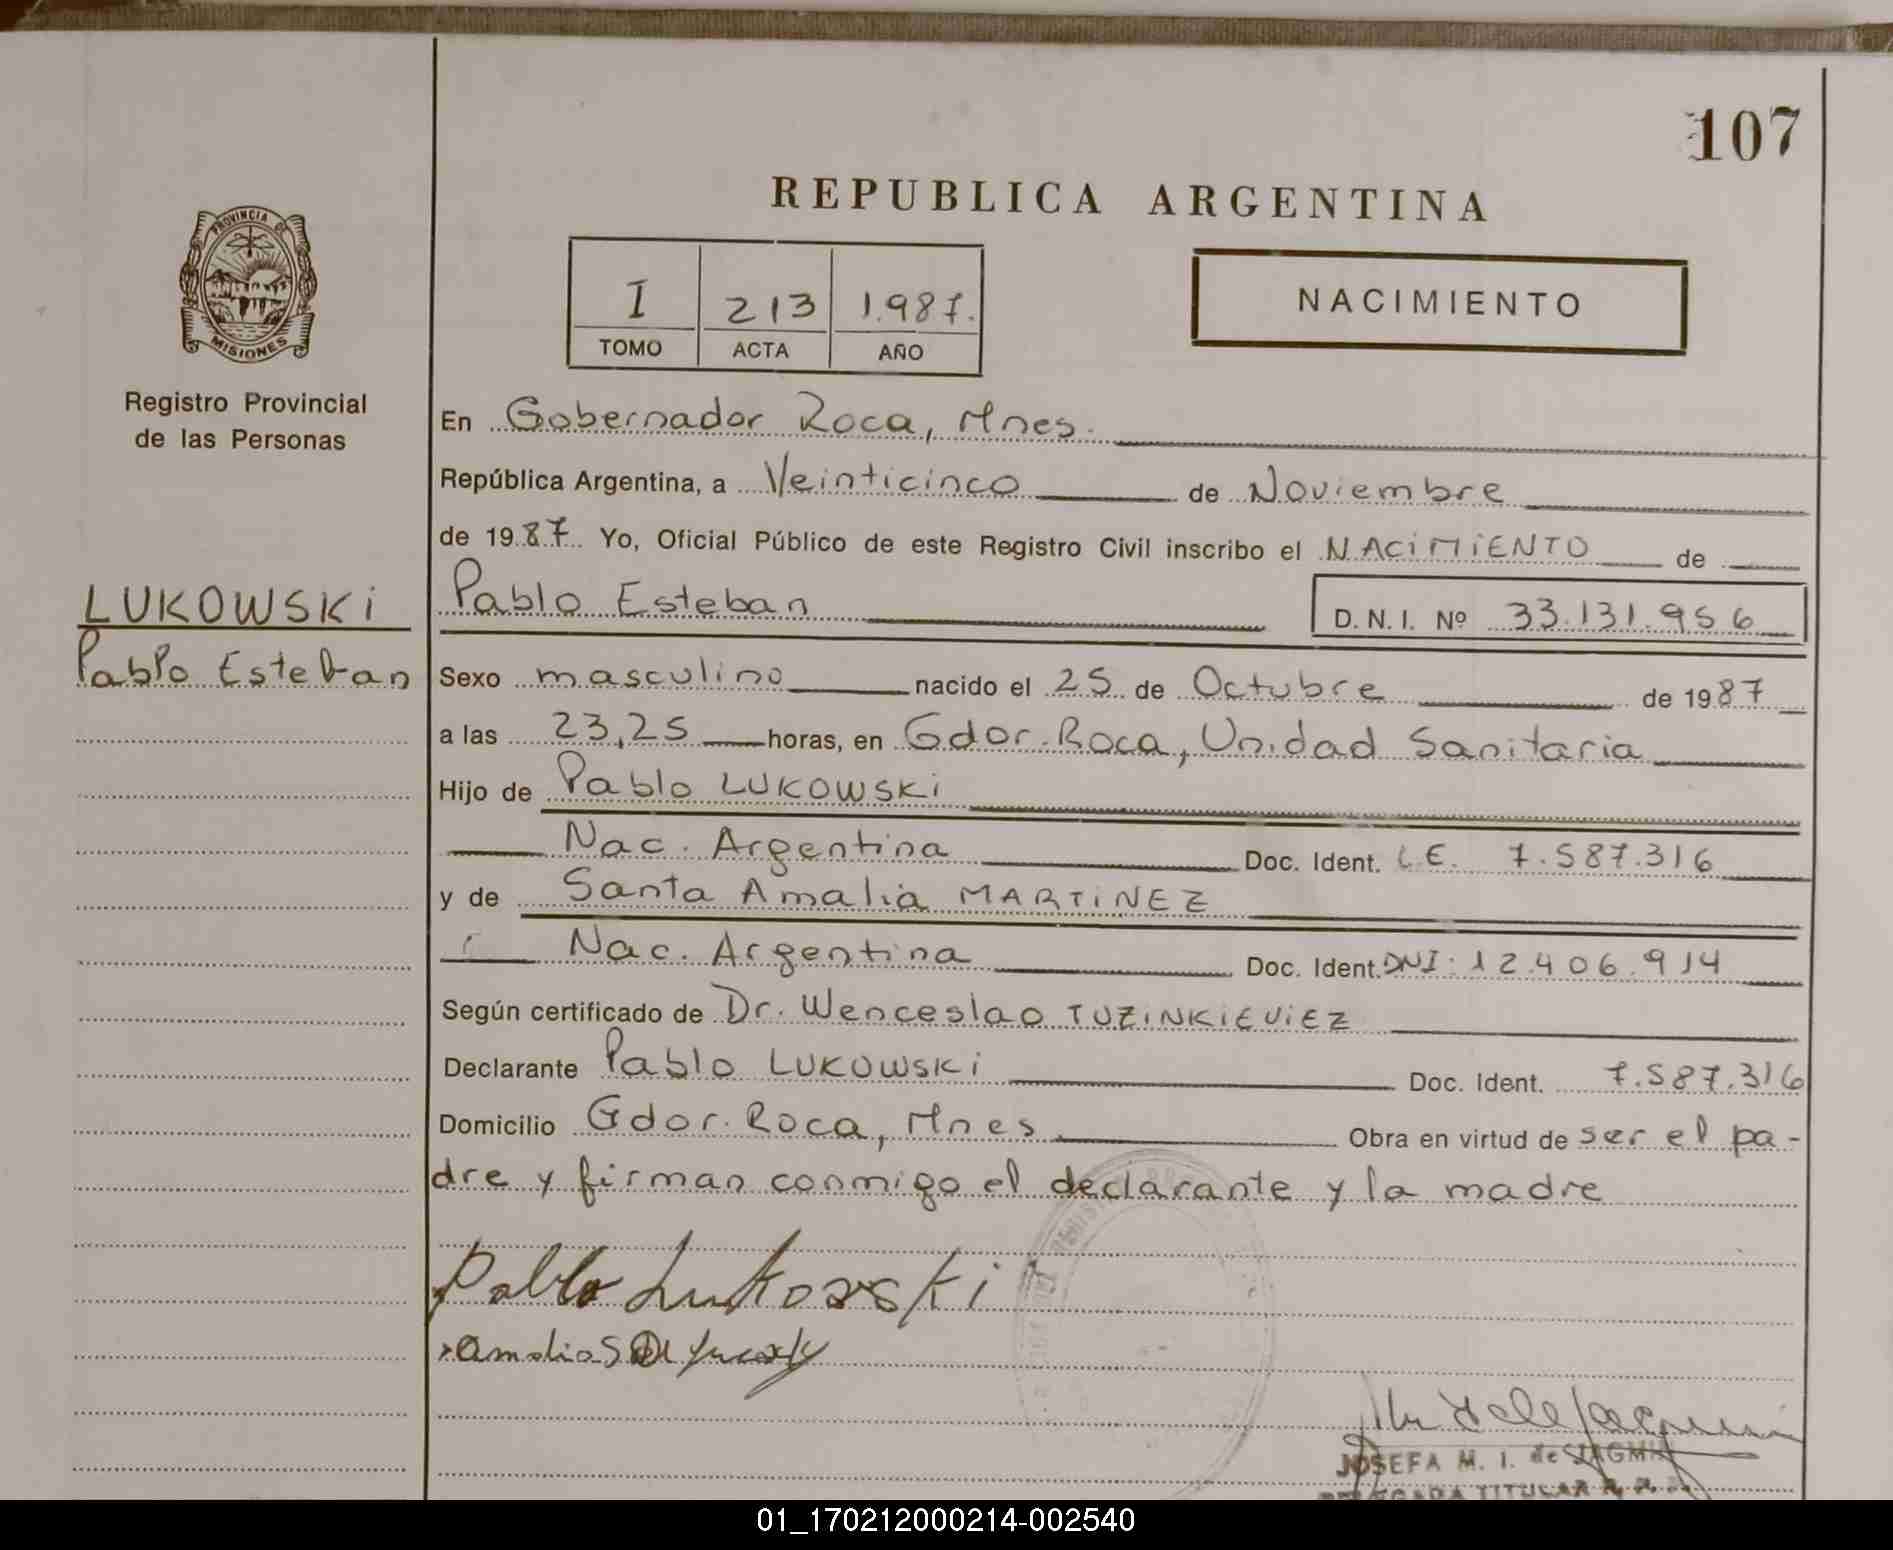 107
REPUBLICA ARGENTINA
PROVINCIA DE
MISIONES
I 213 1.987.
TOMO ACTA AÑO
NACIMIENTO
Registro Provincial
de las Personas
En Gobernador Roca, Mnes.
República Argentina, a Veinticinco de Noviembre
de 1987 Yo, Oficial Público de este Registro Civil inscribo el NACiMiENTO de
LUKOWSKi
Pablo Esteban
Pablo Esteban D. N. I. Nº 33.131.956
Sexo masculino nacido el 25 de Octubre de 1987
a las 23,25 horas, en Gdor. Roca, Unidad Sanitaria
Hijo de Pablo LUKOWSKi
Nac. Argentina Doc. Ident. L.E. 7.587.316
y de Santa Amalia MARTiNEZ
Nac. Argentina Doc. Ident. DNI: 12.406.914
Según certificado de Dr. Wenceslao TUZiNKiEViEZ
Declarante Pablo LUKOWSKi Doc. Ident. 7.587.316
Domicilio Gdor. Roca, Mnes Obra en virtud de ser el pa-
dre y firman conmigo el declarante y la madre
Pablo Lukowski
JOSEFA M. I. de
DELEGADA TITULAR
01_170212000214-002540